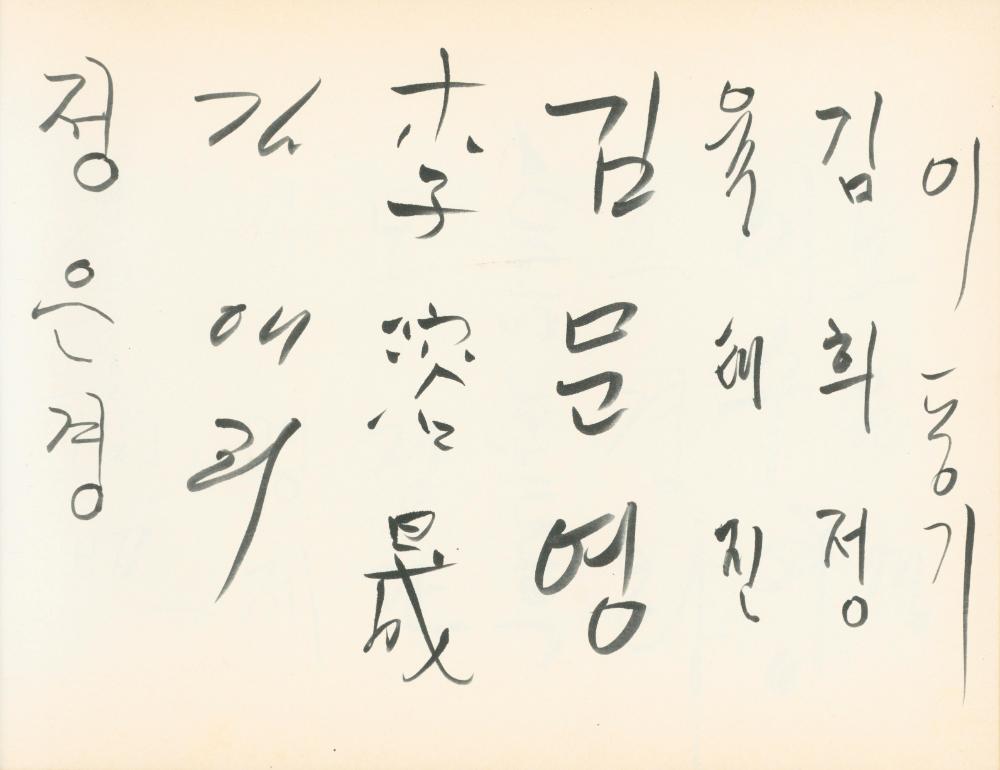 이홍기
김희정
육혜진
김문영
李溶晟
김애리
정은경